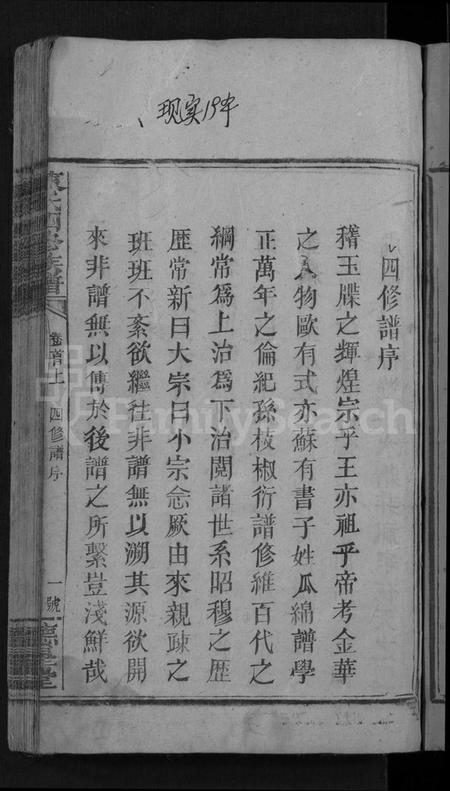 现实19年
四修譜序
稽玉牒之輝煌宗乎王亦祖乎帝考金華
之人物歐有式亦蘇有書子姓瓜綿譜學
正萬年之倫紀孫枝椒衍譜修維百代之
綱常爲上治爲下治閱諸世系昭穆之歷
歷常新曰大宗曰小宗念厥由來親疎之
班班不紊欲繼往非譜無以溯其源欲開
來非譜無以傳於後譜之所繫豈淺鮮哉
氏四修族譜
卷首上
四修譜序
一號
堂
FamilySearch